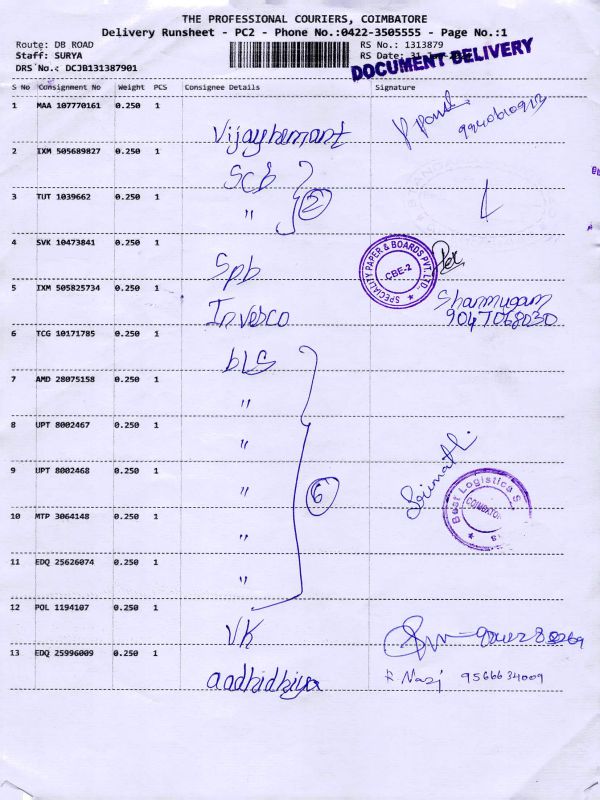 THE PROFESSIONAL COURIERS, COIMBATORE
Delivery Runsheet - PC2 - Phone No.:0422-3505555 - Page No.:1
Route: DB ROAD RS No.: 1313879
Staff: SURYA RS Date: 31
DRS No.: DCJB131387901
DOCUMENT DELIVERY
S No Consignment No Weight PCS Consignee Details Signature
1 MAA 107770161 0.250 1 Vijayhemant
2 IXM 505689827 0.250 1 SCB
3 TUT 1039662 0.250 1 " 2
4 SVK 10473841 0.250 1 Spb
SPECIALITY PAPER & BOARDS PVT. LTD. CBE-2
5 IXM 505825734 0.250 1 Invesco Shanmugam
9047068030
6 TCG 10171785 0.250 1 bLS
7 AMD 28075158 0.250 1 "
8 UPT 8002467 0.250 1 "
9 UPT 8002468 0.250 1 " 6
Best Logistics S
10 MTP 3064148 0.250 1 "
11 EDQ 25626074 0.250 1 "
12 POL 1194107 0.250 1 VK
13 EDQ 25996009 0.250 1 aadhidhiya 9566634009